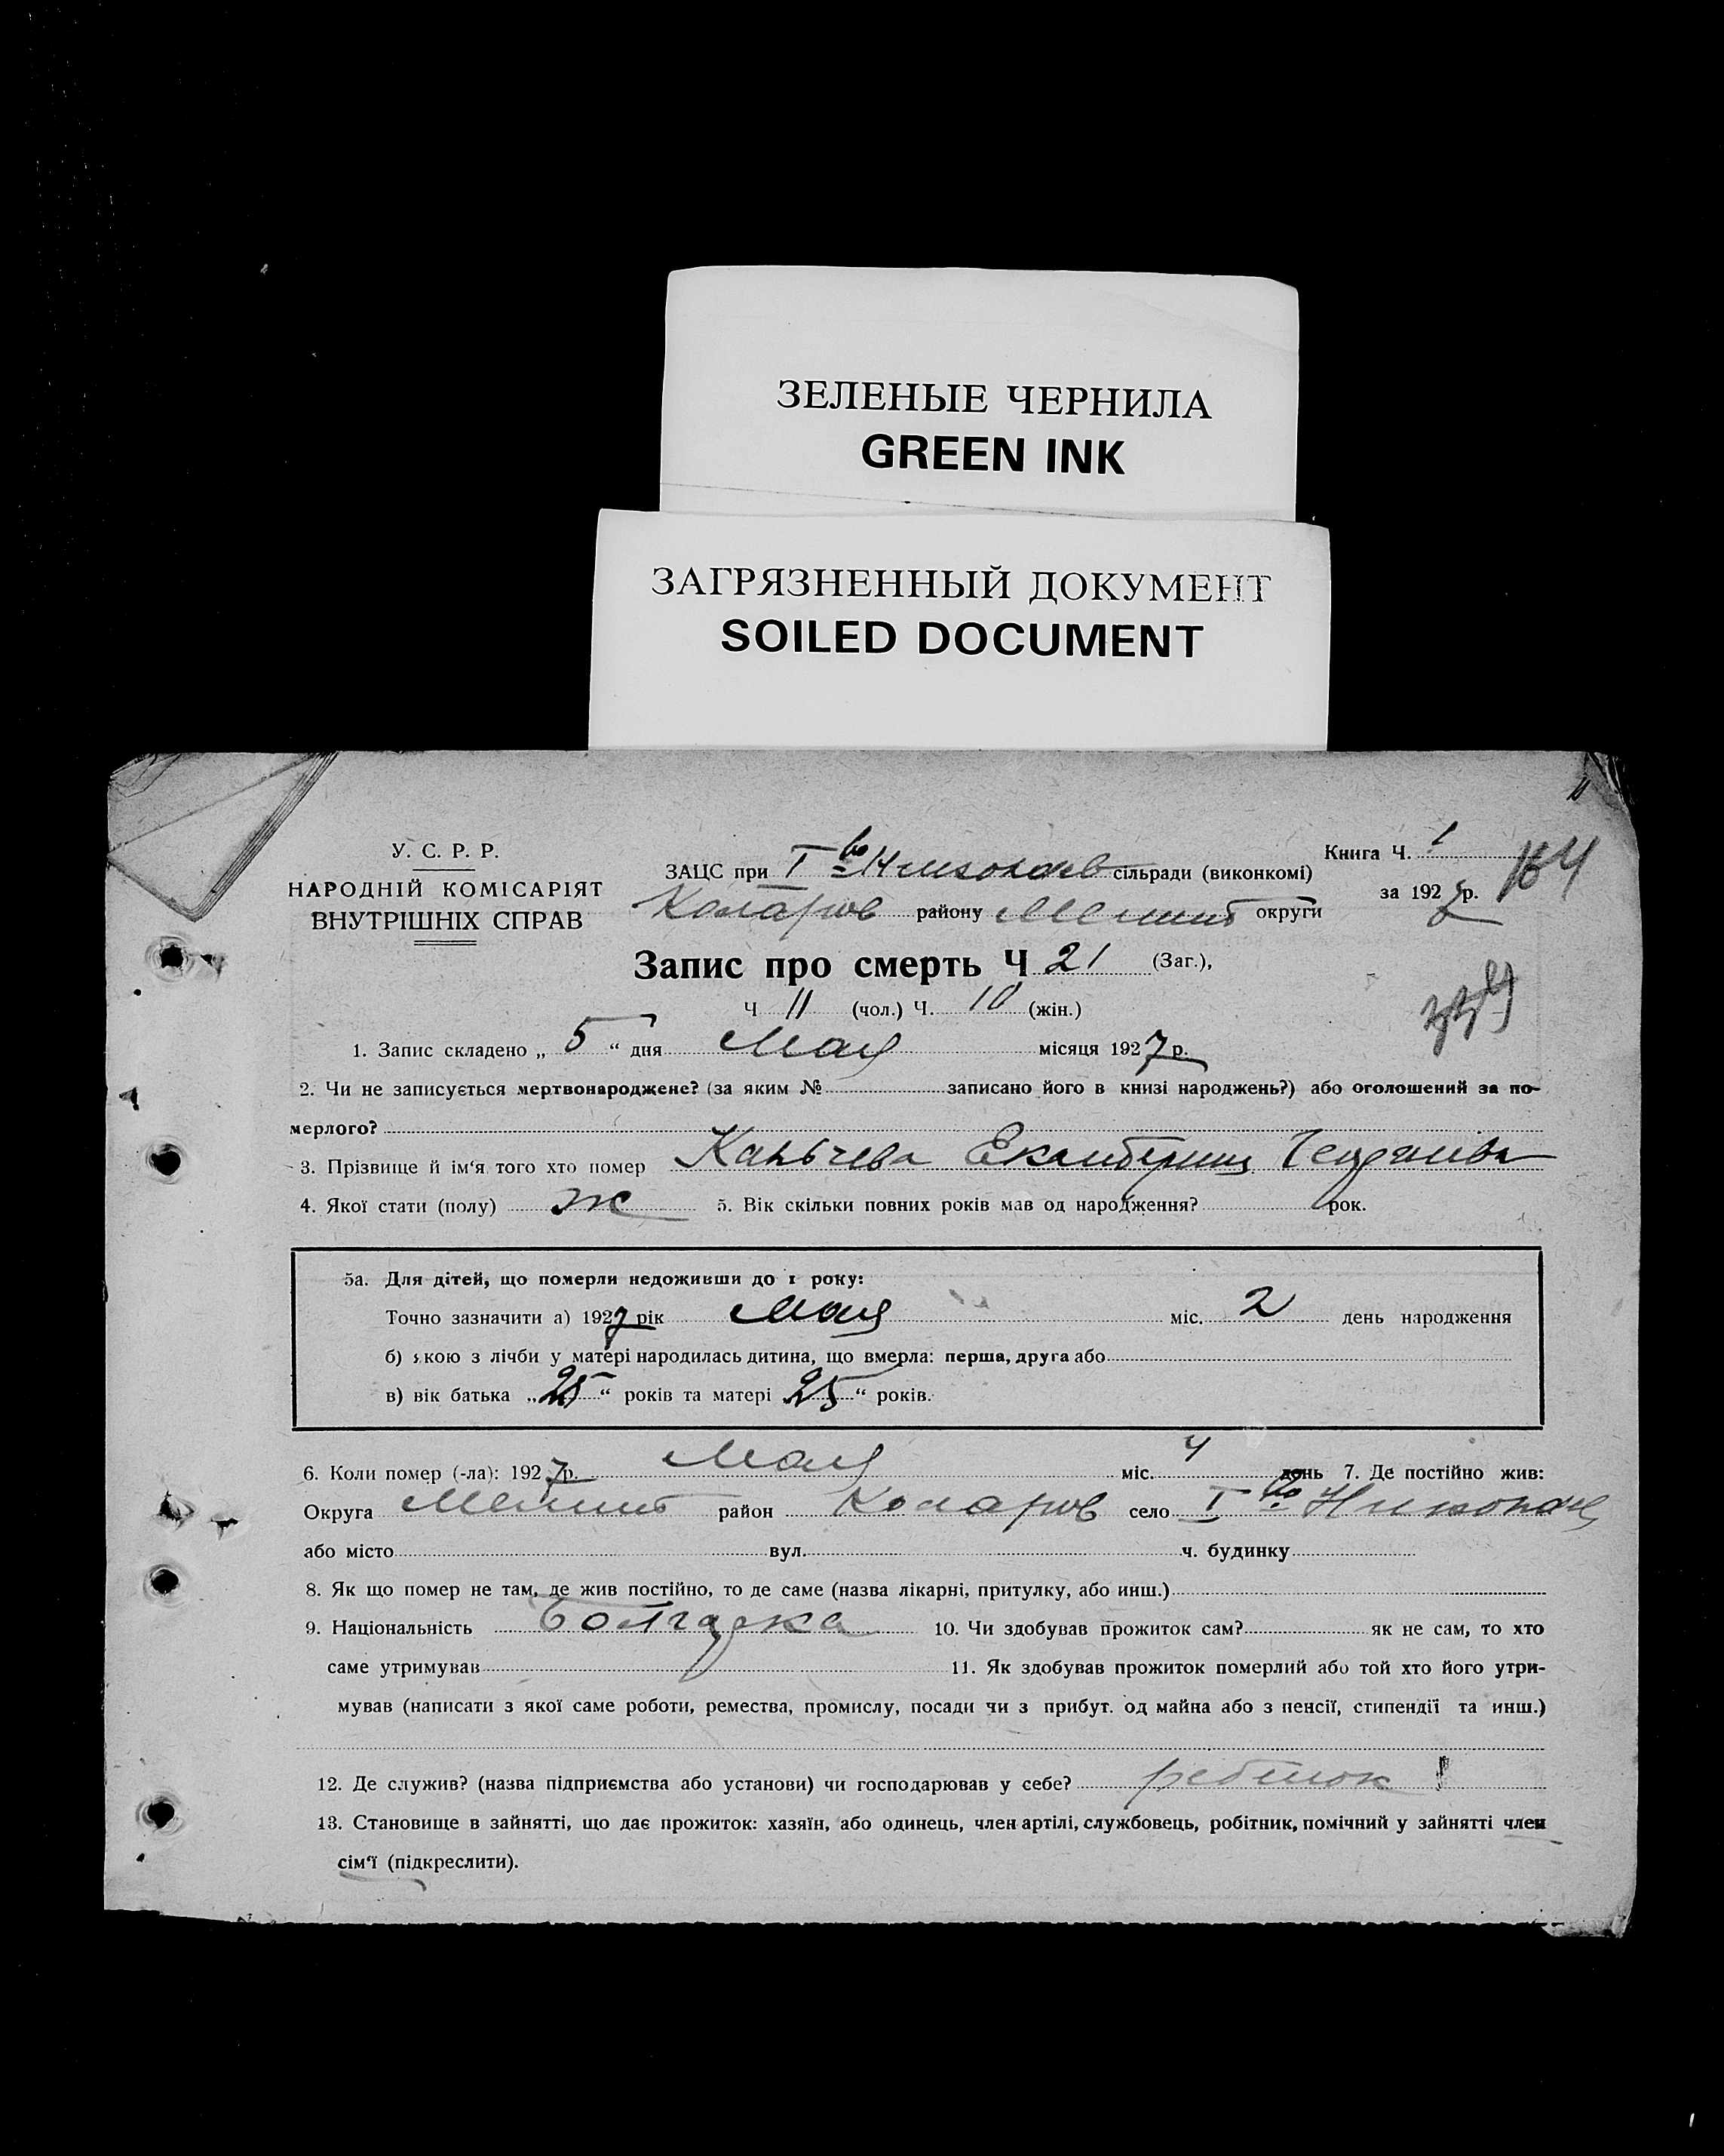 ЗЕЛЕНЫЕ ЧЕРНИЛА
GREEN INK
ЗАГРЯЗНЕННЫЙ ДОКУМЕНТ
SOILED DOCUMENT
У. С. Р. Р.
НАРОДНІЙ КОМІСАРІЯТ
ВНУТРІШНІХ СПРАВ
ЗАЦС при І во Николаев сільради (виконкомі)
Коларов району Мелит округи
Книга Ч. 1
за 1927 р.
164
Запис про смерть Ч 21 (Заг.),
Ч 11 (чол.) Ч. 10 (жін.)
1. Запис складено „ 5 “ дня Мая місяця 1927 р.
2. Чи не записується мертвонароджене? (за яким № записано його в книзі народжень?) або оголошений за по-
мерлого?
3. Прізвище й ім‘я того хто помер Каньчева Екатерина
4. Якої стати (полу) ж 5. Вік скільки повних років мав од народження? рок.
5а. Для дітей, що померли недоживши до 1 року:
Точно зазначити а) 1927 рік Мая міс. 2 день народження
б) якою з лічби у матері народилась дитина, що вмерла: перша, друга або
в) вік батька „ 25 “ років та матері 25 “ років.
6. Коли помер (-ла): 1927 р. Мая міс. 4 день 7. Де постійно жив:
Округа Мелит район Коларов село І во
або місто вул. ч. будинку
8. Як що помер не там, де жив постійно, то де саме (назва лікарні, притулку, або инш.)
9. Національність болгарка 10. Чи здобував прожиток сам? як не сам, то хто
саме утримував 11. Як здобував прожиток померлий або той хто його утри-
мував (написати з якої саме роботи, ремества, промислу, посади чи з прибут. од майна або з пенсії, стипендії та инш.)
12. Де служив? (назва підприємства або установи) чи господарював у себе? ребенок
13. Становище в зайнятті, що дає прожиток: хазяїн, або одинець, член артілі, службовець, робітник, помічний у зайнятті член
сім‘ї (підкреслити).